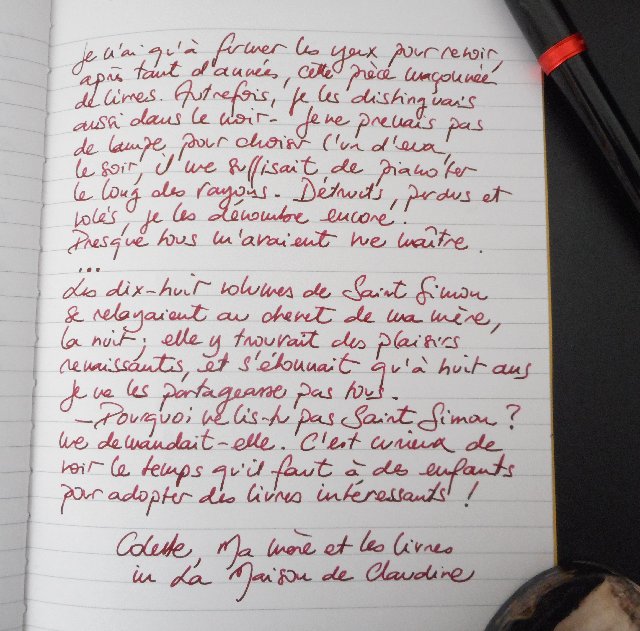 Je n'ai qu'à fermer les yeux pour revoir,
après tant d'années, cette pièce maçonnée
de livres. Autrefois, je les distinguais
aussi dans le noir - Je ne prenais pas
de lampe pour choisir l'un d'eux,
le soir, il me suffisait de pianoter
le long des rayons. Détruits, perdus et
volés, je les dénombre encore.
Presque tous m'avaient vue naître.
...
Les dix-huit volumes de Saint Simon
se relayaient au chevet de ma mère,
la nuit ; elle y trouvait des plaisirs
renaissants, et s'étonnait qu'à huit ans
je ne les partageasse pas tous.
- Pourquoi ne lis-tu pas Saint Simon ?
me demandait-elle. C'est curieux de
voir le temps qu'il faut à des enfants
pour adopter des livres intéressants !
Colette, Ma mère et les livres
in La Maison de Claudine